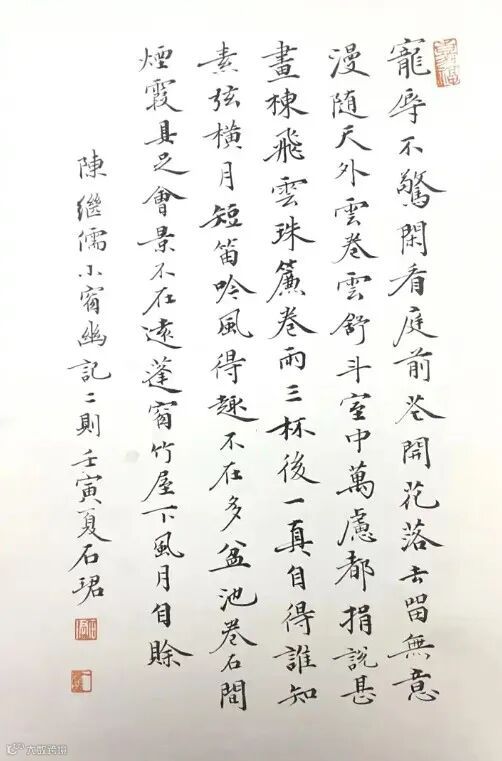 寵辱不驚閑看庭前花開花落去留無意
漫隨天外雲卷雲舒斗室中萬慮都捐說甚
畫棟飛雲珠簾卷雨三杯後一真自得誰知
素弦橫月短笛吟風得趣不在多盆池卷石間
煙霞具足會景不在遠蓬窗竹屋下風月自賒
陳繼儒小窗幽記二則壬寅夏石珺
大数跨境